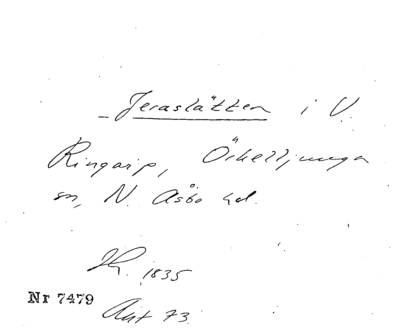 Jeraslätten i V.
Ringarp, Örkelljunga
sn, N. Åsbo hd.
Jk. 1835
Nr 7479
Akt 73